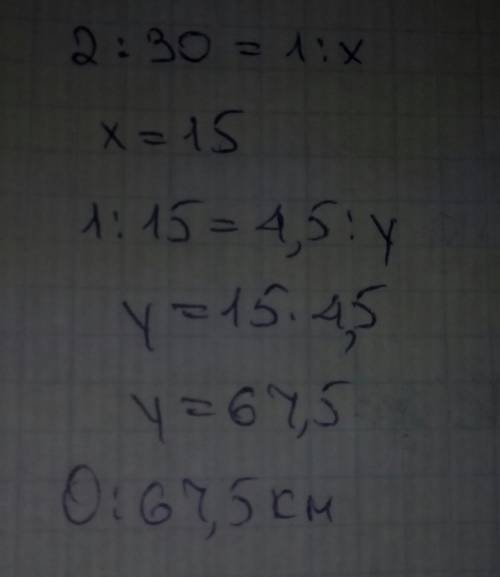 2 : 30 = 1 : x
x = 15
1 : 15 = 4,5 : y
y = 15 · 4,5
y = 67,5
О: 67,5 км